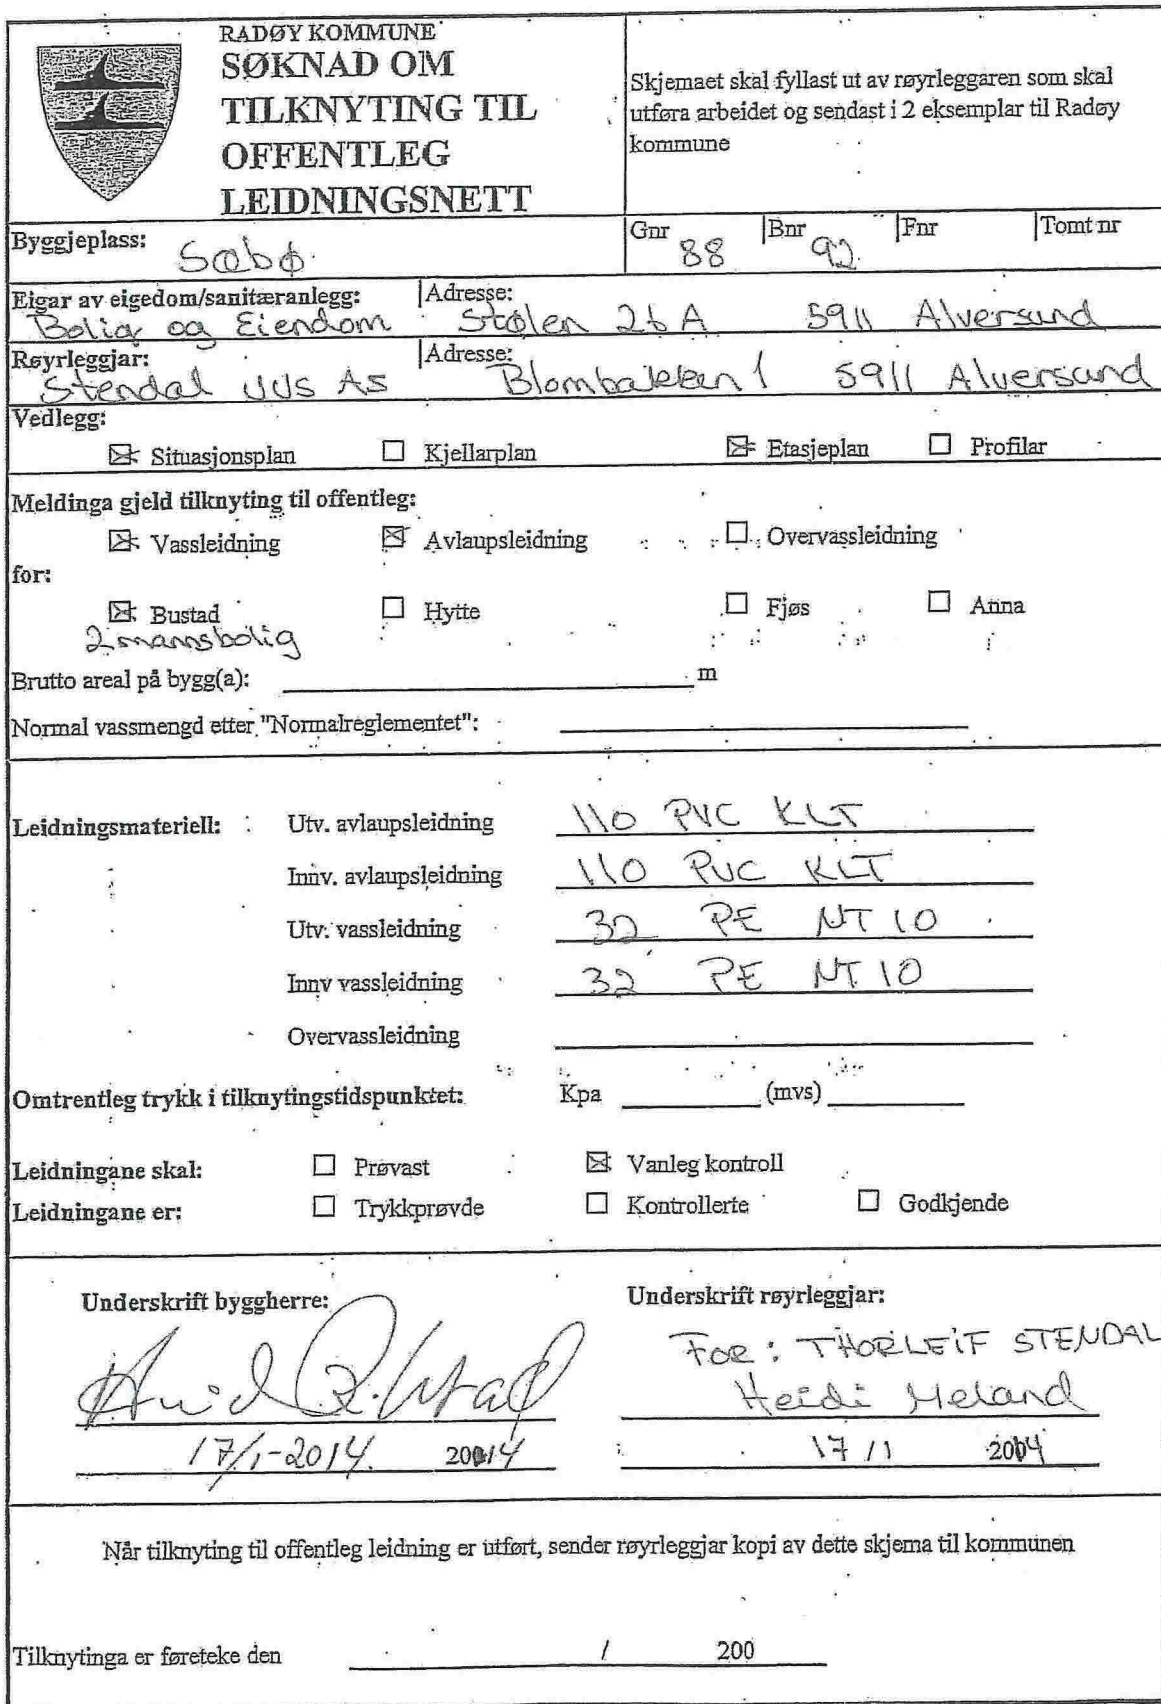 RADØY KOMMUNE
SØKNAD OM
TILKNYTING TIL
OFFENTLEG
LEIDNINGSNETT
Skjemaet skal fyllast ut av røyrleggaren som skal
utføra arbeidet og sendast i 2 eksemplar til Radøy
kommune
Byggjeplass: Sæbø Gnr 88 Bnr 92 Fnr Tomt nr
Eigar av eigedom/sanitæranlegg: Adresse:
Bolig og Eiendom Stølen 26 A 5911 Alversund
Røyrleggjar: Adresse:
Stendal VVS AS Blombakken 1 5911 Alversund
Vedlegg:
Situasjonsplan Kjellarplan Etasjeplan Profilar
Meldinga gjeld tilknyting til offentleg:
Vassleidning Avlaupsleidning Overvassleidning
for:
Bustad Hytte Fjøs Anna
2 mannsbolig
Brutto areal på bygg(a): m
Normal vassmengd etter "Normalreglementet":
Leidningsmateriell: Utv. avlaupsleidning 110 PVC KLT
Innv. avlaupsleidning 110 PVC KLT
Utv. vassleidning 32 PE NT 10
Innv vassleidning 32 PE NT 10
Overvassleidning
Omtrentleg trykk i tilknytingstidspunktet: Kpa (mvs)
Leidningane skal: Prøvast Vanleg kontroll
Leidningane er: Trykkprøvde Kontrollerte Godkjende
Underskrift byggherre: Underskrift røyrleggjar:
For: THORLEIF STENDAL
Heidi Meland
17/1-2014. 2014 17/1 2014
Når tilknyting til offentleg leidning er utført, sender røyrleggjar kopi av dette skjema til kommunen
Tilknytinga er føreteke den / 200